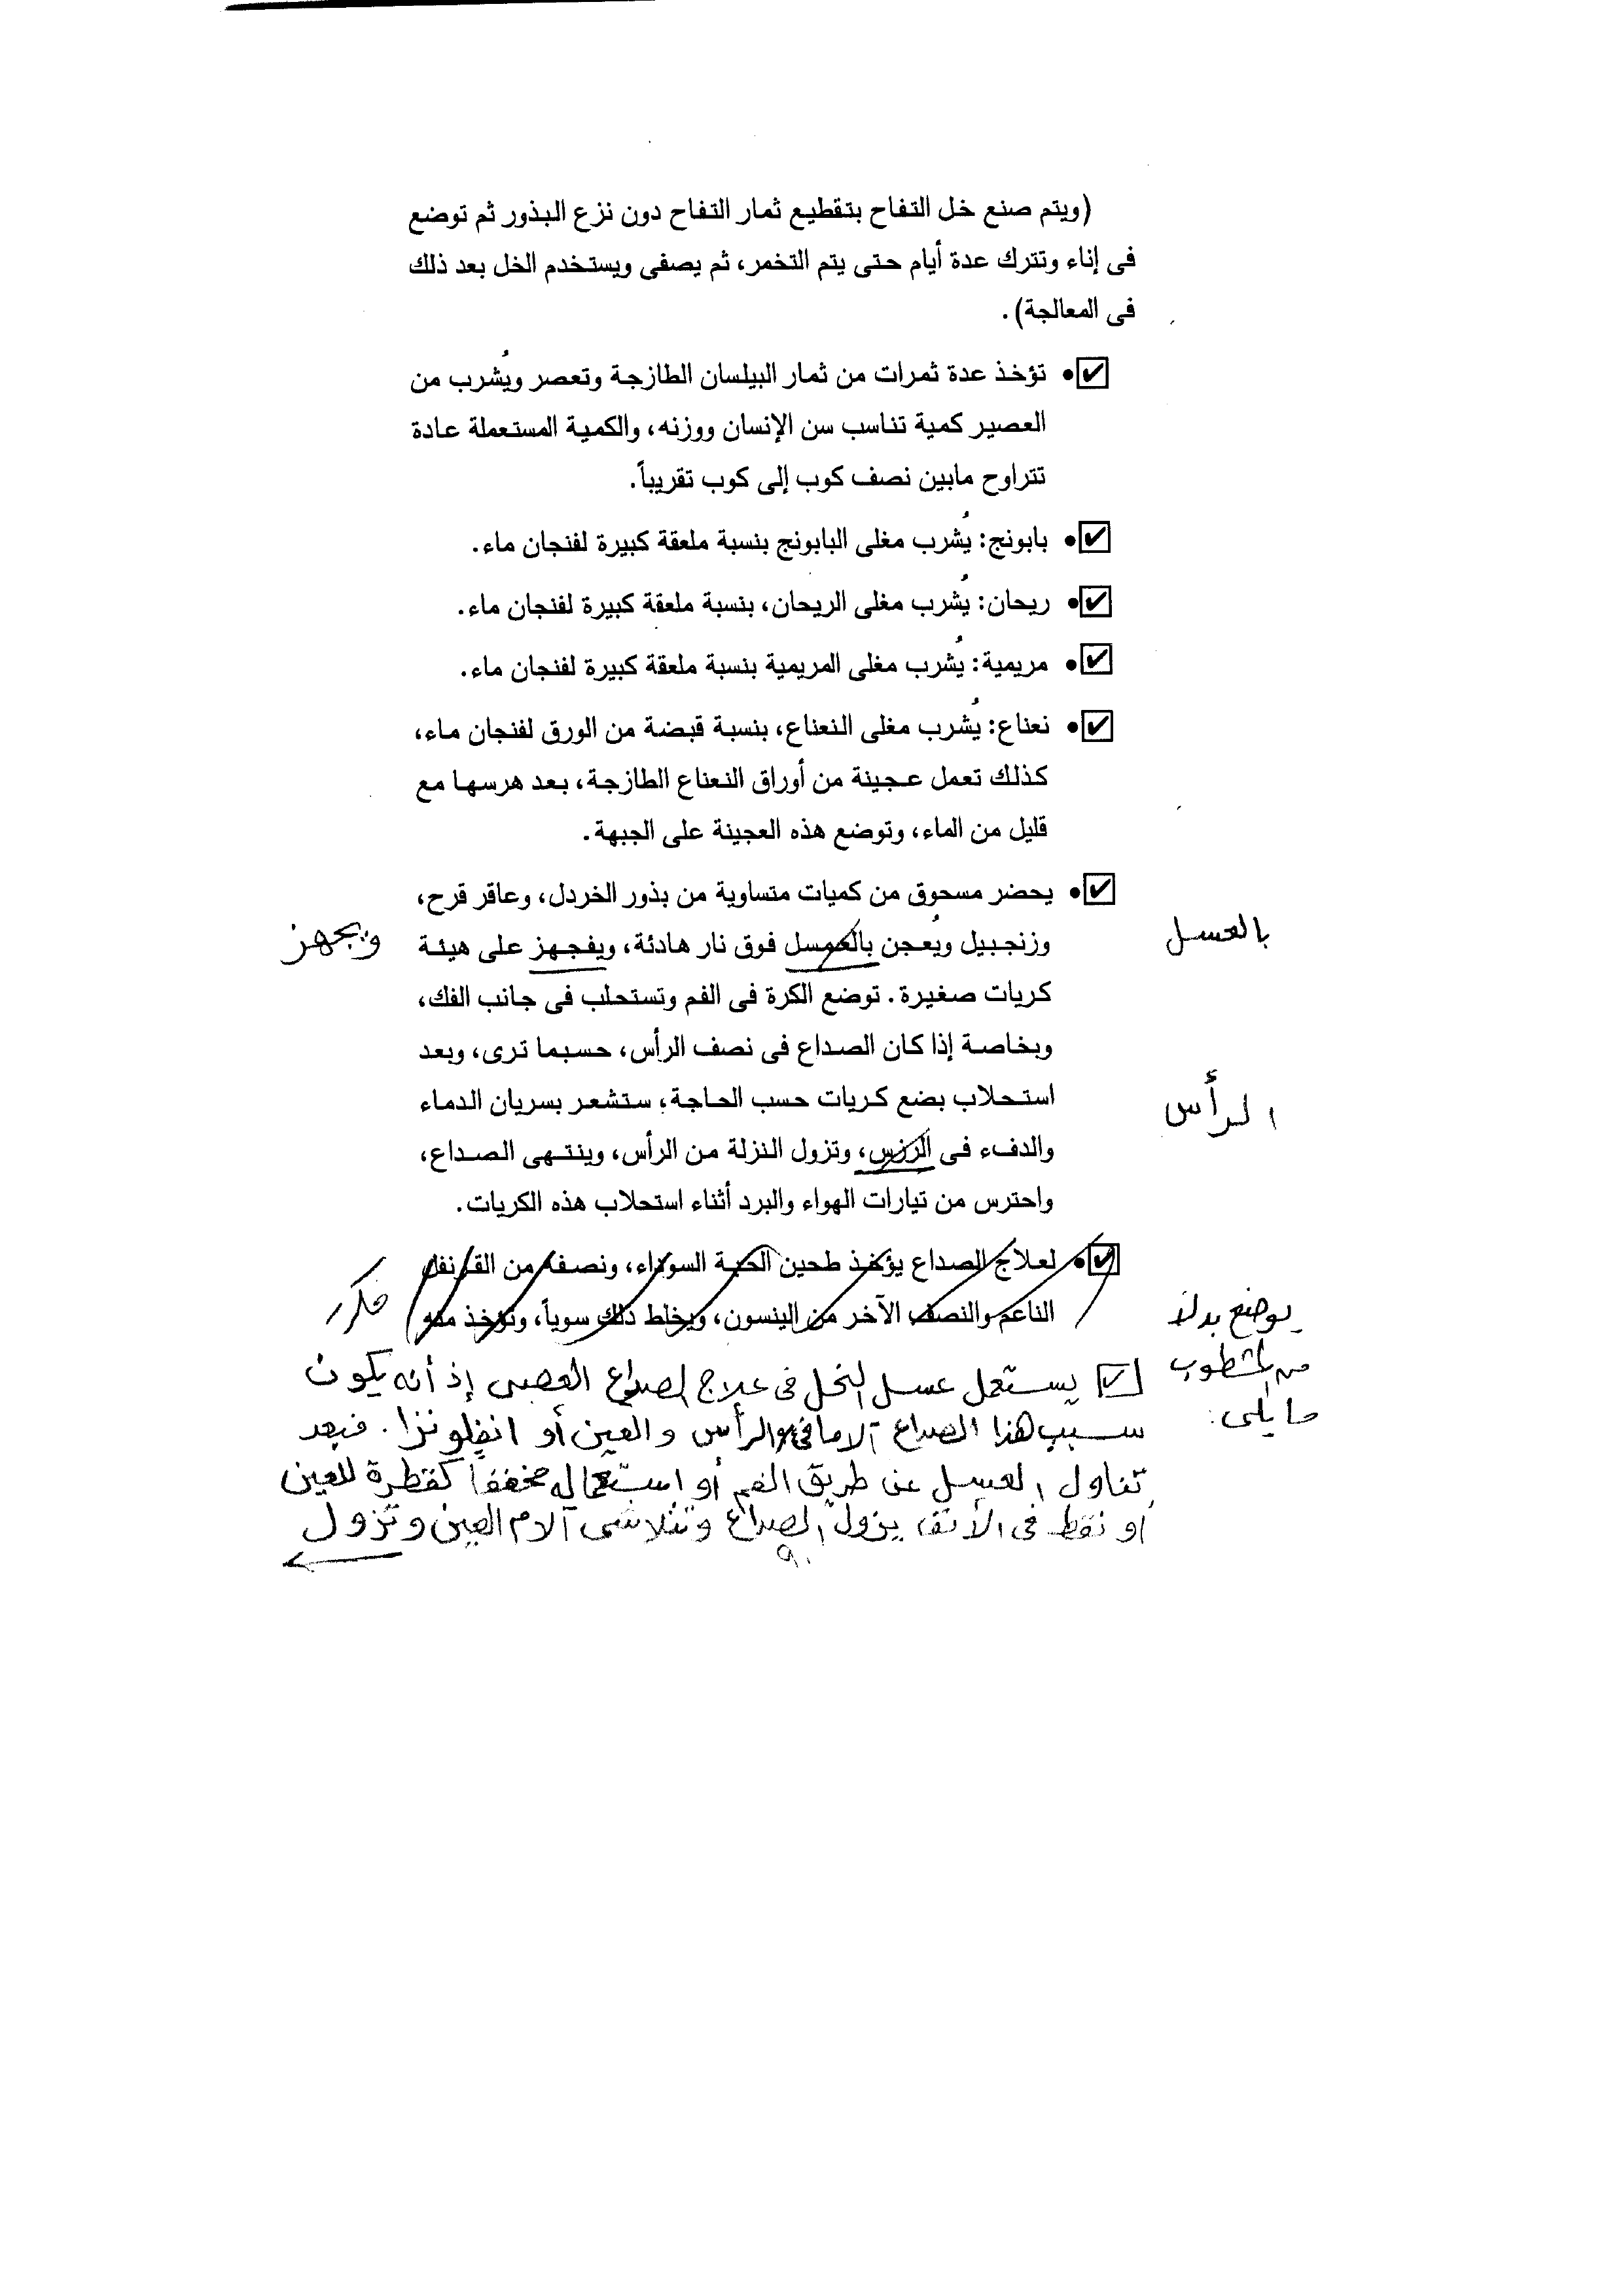 (ويتم صنع خل التفاح بتقطيع ثمار التفاح دون نزع البذور ثم توضع
فى إناء وتترك عدة أيام حتى يتم التخمر، ثم يصفى ويستخدم الخل بعد ذلك
فى المعالجة).
☑• تؤخذ عدة ثمرات من ثمار البيلسان الطازجة وتعصر ويُشرب من
العصير كمية تناسب سن الإنسان ووزنه، والكمية المستعملة عادة
تتراوح مابين نصف كوب إلى كوب تقريباً.
☑• بابونج: يُشرب مغلى البابونج بنسبة ملعقة كبيرة لفنجان ماء.
☑• ريحان: يُشرب مغلى الريحان، بنسبة ملعقة كبيرة لفنجان ماء.
☑• مريمية: يُشرب مغلى المريمية بنسبة ملعقة كبيرة لفنجان ماء.
☑• نعناع: يُشرب مغلى النعناع، بنسبة قبضة من الورق لفنجان ماء،
كذلك تعمل عجينة من أوراق النعناع الطازجة، بعد هرسها مع
قليل من الماء، وتوضع هذه العجينة على الجبهة.
☑• يحضر مسحوق من كميات متساوية من بذور الخردل، وعاقر قرح،
بالعسل
وزنجبيل ويُعجن بالعمسل فوق نار هادئة، ويفجهز على هيئة
ويجهز
كريات صغيرة. توضع الكرة فى الفم وتستحلب فى جانب الفك،
وبخاصة إذا كان الصداع فى نصف الرأس، حسبما ترى، وبعد
استحلاب بضع كريات حسب الحاجة، ستشعر بسريان الدماء
الرأس
والدفء فى الرزس، وتزول النزلة من الرأس، وينتهى الصداع،
واحترس من تيارات الهواء والبرد أثناء استحلاب هذه الكريات.
☑• لعلاج الصداع يؤخذ طحين الحبة السوداء، ونصفه من القرنفل
الناعم والنصف الآخر من الينسون، ويخلط ذلك سوياً، وتؤخذ منه
مكرر
يوضع بدلاً
من المشطوب
ما يلى:
☑ يستعمل عسل النحل فى علاج الصداع العصبى إذ أنه يكون
سبب هذا الصداع آلاما فى الرأس والعين أو انفلونزا. فبعد
تناول العسل عن طريق الفم أو استعماله مخففاً كقطرة للعين
أو نقط فى الأنف يزول الصداع وتتلاشى آلام العين وتزول
٩٠